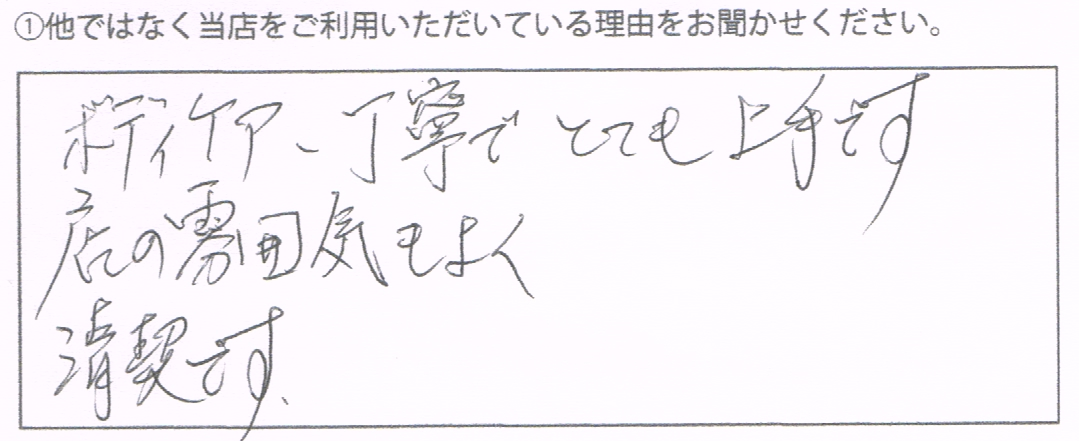 ①他ではなく当店をご利用いただいている理由をお聞かせください。
ボディケア、丁寧で とても 上手です
店の雰囲気もよく
清潔です、